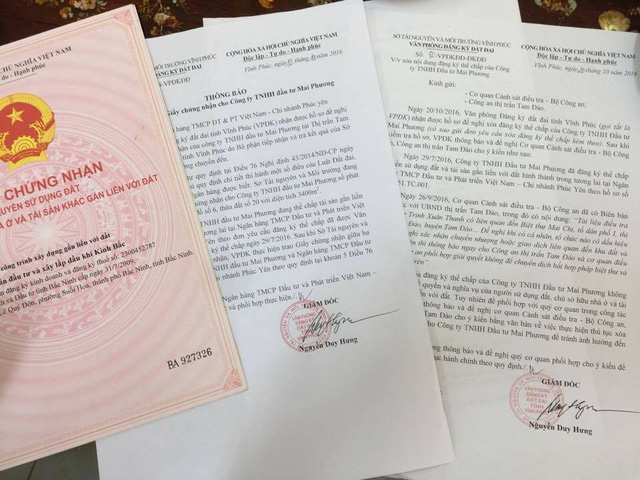 CHỦ NGHĨA VIỆT NAM
do - Hạnh phúc
CHỨNG NHẬN
QUYỀN SỬ DỤNG ĐẤT
Ở VÀ TÀI SẢN KHÁC GẮN LIỀN VỚI ĐẤT
công trình xây dựng gắn liền với đất
đầu tư và xây lắp dầu khí Kinh Bắc
đăng ký kinh doanh và đăng ký thuế: 2300452787
và Đầu tư tỉnh Bắc Ninh cấp ngày 31/7/2009.
Lê Quý Đôn, phường Suối Hoa, thành phố Bắc Ninh, tỉnh Bắc Ninh,
BA 927326
MÔI TRƯỜNG VĨNH PHÚC
ĐĂNG KÝ ĐẤT ĐAI
/VPĐKĐĐ
CỘNG HÒA XÃ HỘI CHỦ NGHĨA VIỆT NAM
Độc lập - Tự do - Hạnh phúc
Vĩnh Phúc, ngày tháng 10 năm 2016
THÔNG BÁO
Giấy chứng nhận cho Công ty TNHH đầu tư Mai Phương
hàng TMCP ĐT & PT Việt Nam - Chi nhánh Phúc Yên
đăng ký đất đai tỉnh Vĩnh Phúc (VPĐK) nhận được hồ sơ đề nghị
chứng nhận của công ty TNHH đầu tư Mai Phương tại Thị trấn Tam
Vĩnh Phúc do Bộ phận tiếp nhận và trả kết quả của Sở
chuyển đến.
quy định tại Điều 76 Nghị định 43/2014/NĐ-CP ngày
quy định chi tiết thi hành một số điều của Luật Đất đai,
TNHH đầu tư Mai Phương số phát
số 6, thửa đất số 20 với diện tích 3400m²
TNHH đầu tư Mai Phương đang thế chấp tài sản gắn liền
lai tại Ngân hàng TMCP Đầu tư và Phát triển Việt Nam -
theo đơn yêu cầu đăng ký thế chấp đã được Văn
ngày 29/7/2016. Sau khi Sở Tài nguyên và
nhận, VPĐK thực hiện trao Giấy chứng nhận giữa ba
đầu tư Mai Phương và Ngân hàng TMCP Đầu tư
nhánh Phúc Yên theo quy định tại khoản 5 Điều 76
Ngân hàng TMCP Đầu tư và Phát triển Việt Nam –
và phối hợp thực hiện./.
GIÁM ĐỐC
Nguyễn Duy Hưng
SỞ TÀI NGUYÊN VÀ MÔI TRƯỜNG VĨNH PHÚC
VĂN PHÒNG ĐĂNG KÝ ĐẤT ĐAI
Số: /VPĐKĐĐ-ĐKĐĐ
V/v xóa nội dung đăng ký thế chấp của Công
ty TNHH Đầu tư Mai Phương
CỘNG HÒA XÃ HỘI CHỦ NGHĨA VIỆT NAM
Độc lập - Tự do - Hạnh phúc
Vĩnh Phúc, ngày tháng 10 năm 2016
Kính gửi:
- Cơ quan Cảnh sát điều tra - Bộ Công an;
- Công an thị trấn Tam Đảo.
Ngày 20/10/2016, Văn phòng Đăng ký đất đai Vĩnh Phúc (gọi tắt là
VPĐK) nhận được hồ sơ đề nghị xóa đăng ký thế chấp của Công ty TNHH Đầu tư
Mai Phương (có sao gửi đơn yêu cầu xóa đăng ký thế chấp kèm theo). Sau khi
kiểm tra hồ sơ, VPĐK thông báo và đề nghị Cơ quan Cảnh sát điều tra - Bộ Công
an, Công an thị trấn Tam Đảo cho ý kiến như sau:
Ngày 29/7/2016, Công ty TNHH Đầu tư Mai Phương đăng ký thế chấp
quyền sử dụng đất và tài sản gắn liền với đất hình thành trong tương lai tại Ngân
TMCP Đầu tư và Phát triển Việt Nam – Chi nhánh Phúc Yên theo hồ sơ số
51.TC.001.
26/9/2016, Cơ quan Cảnh sát điều tra - Bộ Công an đã có Biên bản
với UBND thị trấn Tam Đảo, trong đó có nội dung: "Tài liệu điều
Trịnh Xuân Thanh có liên quan đến Biệt thự Mai Chi, tổ dân phố 1, thị
Đảo, huyện Tam Đảo... Đề nghị khi có cá nhân, tổ chức nào có dấu hiệu
xác nhận chuyển nhượng hoặc giao dịch liên quan đến khu đất và
thì thông báo ngay cho Công an thị trấn Tam Đảo và cơ quan điều
phối hợp giải quyết không để chuyển dịch bất hợp pháp biệt thự và
đăng ký thế chấp của Công ty TNHH đầu tư Mai Phương không
quyền và nghĩa vụ của người sử dụng đất, chủ sở hữu nhà ở và tài
đất. Tuy nhiên để phối hợp với quý cơ quan trong công tác
cơ quan Cảnh sát điều tra - Bộ Công an,
Tam Đảo cho ý kiến bằng văn bản về việc thực hiện thủ tục xóa
cho Công ty TNHH Đầu tư Mai Phương để tránh ảnh hưởng đến
thông báo và đề nghị quý cơ quan phối hợp cho ý kiến để
tục hành chính theo quy định./.
GIÁM ĐỐC
VĂN PHÒNG
ĐĂNG KÝ
ĐẤT ĐAI
TỈNH
VĨNH PHÚC
Nguyễn Duy Hưng